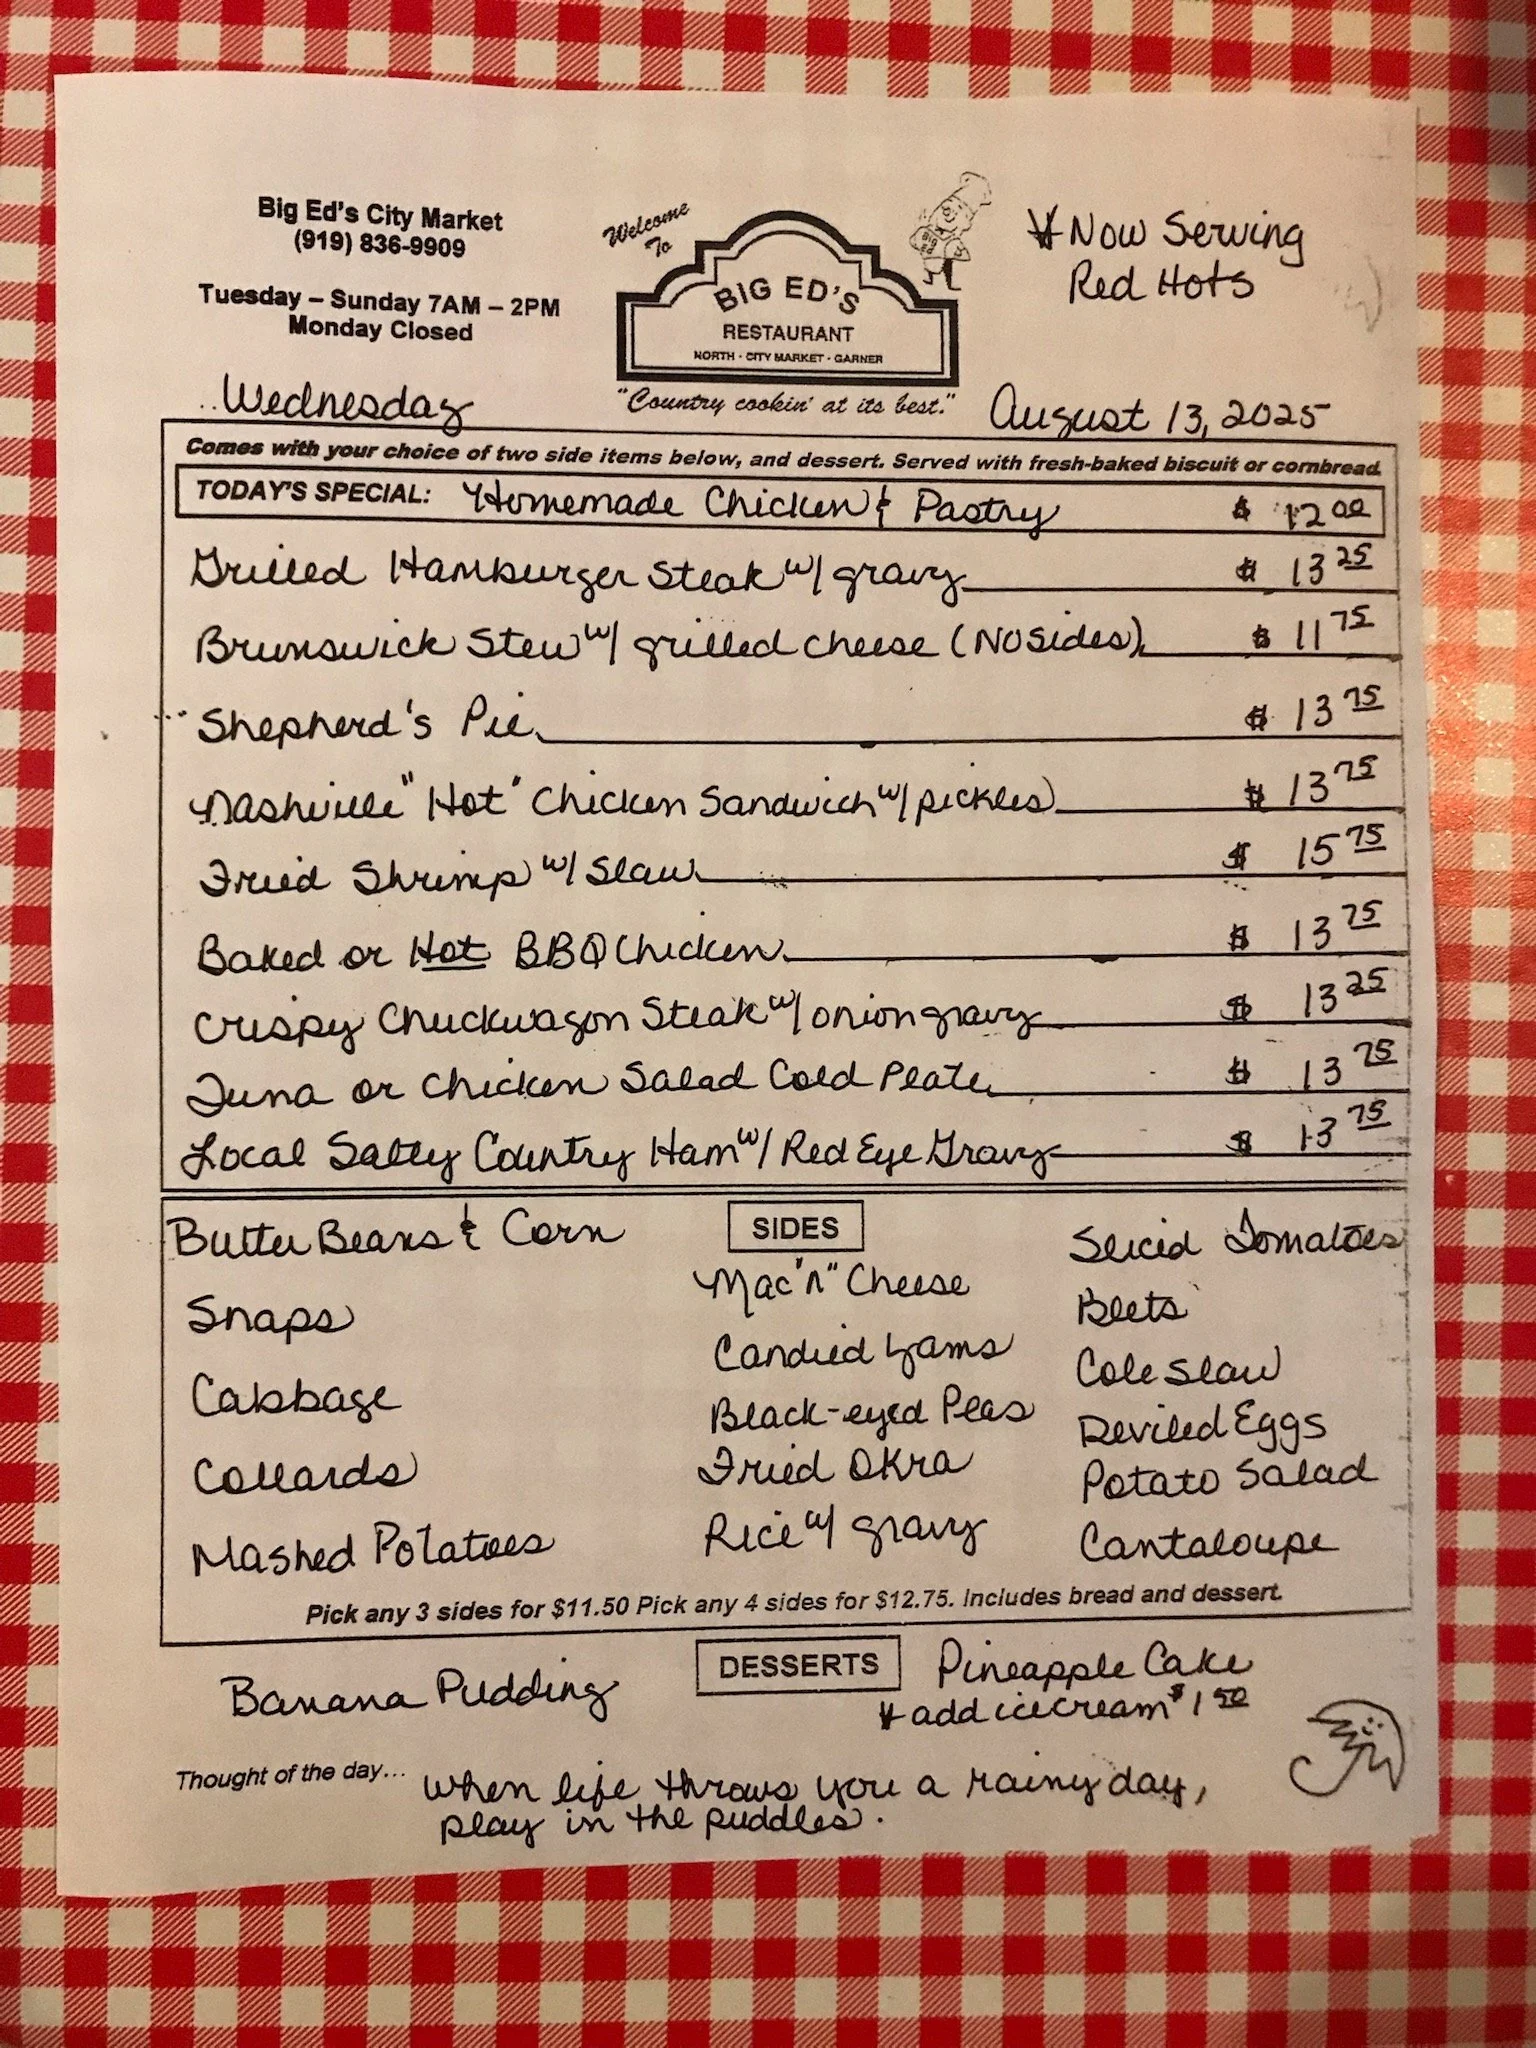 Big Ed's City Market
(919) 836-9909
Tuesday – Sunday 7AM – 2PM
Monday Closed
Welcome
To
BIG ED'S
RESTAURANT
NORTH · CITY MARKET · GARNER
"Country cookin' at its best."
Now Serving
Red Hots
Wednesday
August 13, 2025
Comes with your choice of two side items below, and dessert. Served with fresh-baked biscuit or cornbread.
TODAY'S SPECIAL: Homemade Chicken & Pastry $ 12 00
Grilled Hamburger Steak w/ gravy $ 13 25
Brunswick Stew w/ grilled cheese (No Sides) $ 11 75
Shepherd's Pie $ 13 75
Nashville "Hot" Chicken Sandwich w/ pickles $ 13 75
Fried Shrimp w/ Slaw $ 15 75
Baked or Hot BBQ Chicken $ 13 75
Crispy Chuckwagon Steak w/ onion gravy $ 13 25
Tuna or Chicken Salad Cold Plate $ 13 75
Local Salty Country Ham w/ Red Eye Gravy $ 13 75
SIDES
Butter Beans & Corn
Snaps
Cabbage
Collards
Mashed Potatoes
Mac "n" Cheese
Candied Yams
Black-eyed Peas
Fried Okra
Rice w/ gravy
Sliced Tomatoes
Beets
Cole Slaw
Deviled Eggs
Potato Salad
Cantaloupe
Pick any 3 sides for $11.50 Pick any 4 sides for $12.75. Includes bread and dessert.
DESSERTS
Banana Pudding
Pineapple Cake
add ice cream $1 50
Thought of the day... When life throws you a rainy day,
play in the puddles.